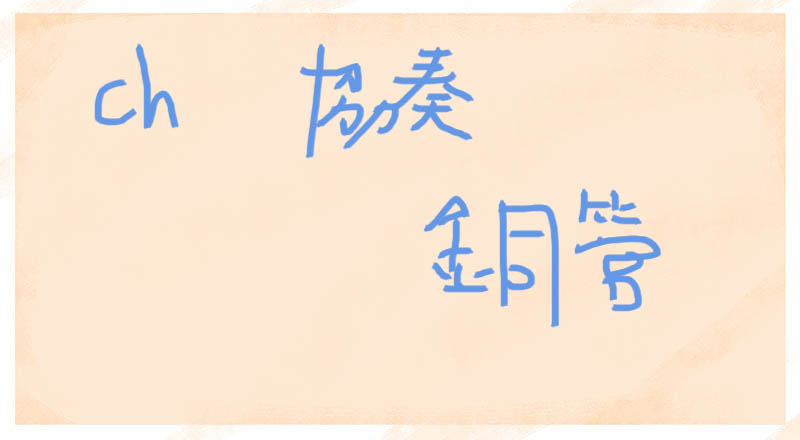 ch 協奏
銅管